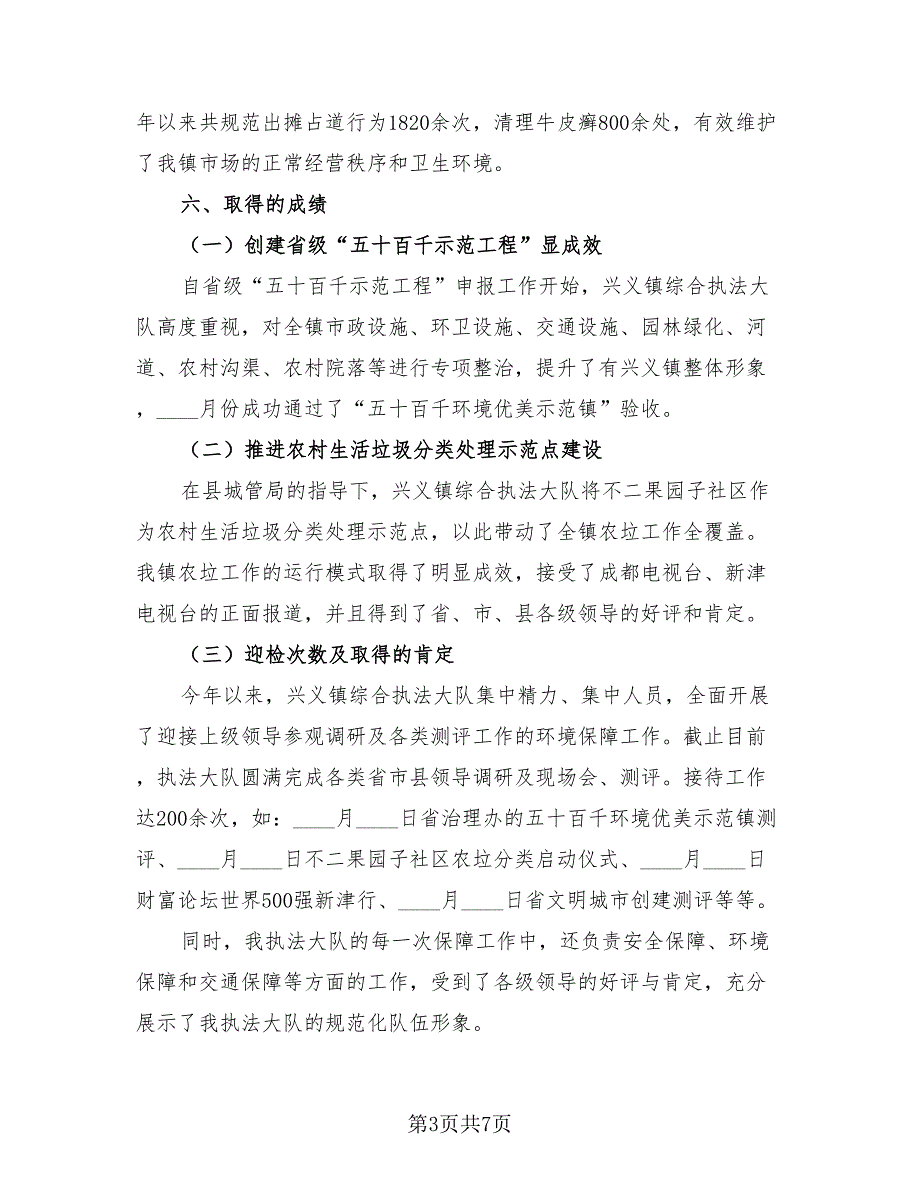 年以来共规范出摊占道行为1820余次，清理牛皮癣800余处，有效维护
了我镇市场的正常经营秩序和卫生环境。
六、取得的成绩
（一）创建省级“五十百千示范工程”显成效
自省级“五十百千示范工程”申报工作开始，兴义镇综合执法大
队高度重视，对全镇市政设施、环卫设施、交通设施、园林绿化、河
道、农村沟渠、农村院落等进行专项整治，提升了有兴义镇整体形象
，____月份成功通过了“五十百千环境优美示范镇”验收。
（二）推进农村生活垃圾分类处理示范点建设
在县城管局的指导下，兴义镇综合执法大队将不二果园子社区作
为农村生活垃圾分类处理示范点，以此带动了全镇农垃工作全覆盖。
我镇农垃工作的运行模式取得了明显成效，接受了成都电视台、新津
电视台的正面报道，并且得到了省、市、县各级领导的好评和肯定。
（三）迎检次数及取得的肯定
今年以来，兴义镇综合执法大队集中精力、集中人员，全面开展
了迎接上级领导参观调研及各类测评工作的环境保障工作。截止目前
，执法大队圆满完成各类省市县领导调研及现场会、测评。接待工作
达200余次，如：____月____日省治理办的五十百千环境优美示范镇测
评、____月____日不二果园子社区农垃分类启动仪式、____月____日
财富论坛世界500强新津行、____月____日省文明城市创建测评等等。
同时，我执法大队的每一次保障工作中，还负责安全保障、环境
保障和交通保障等方面的工作，受到了各级领导的好评与肯定，充分
展示了我执法大队的规范化队伍形象。
第3页共7页